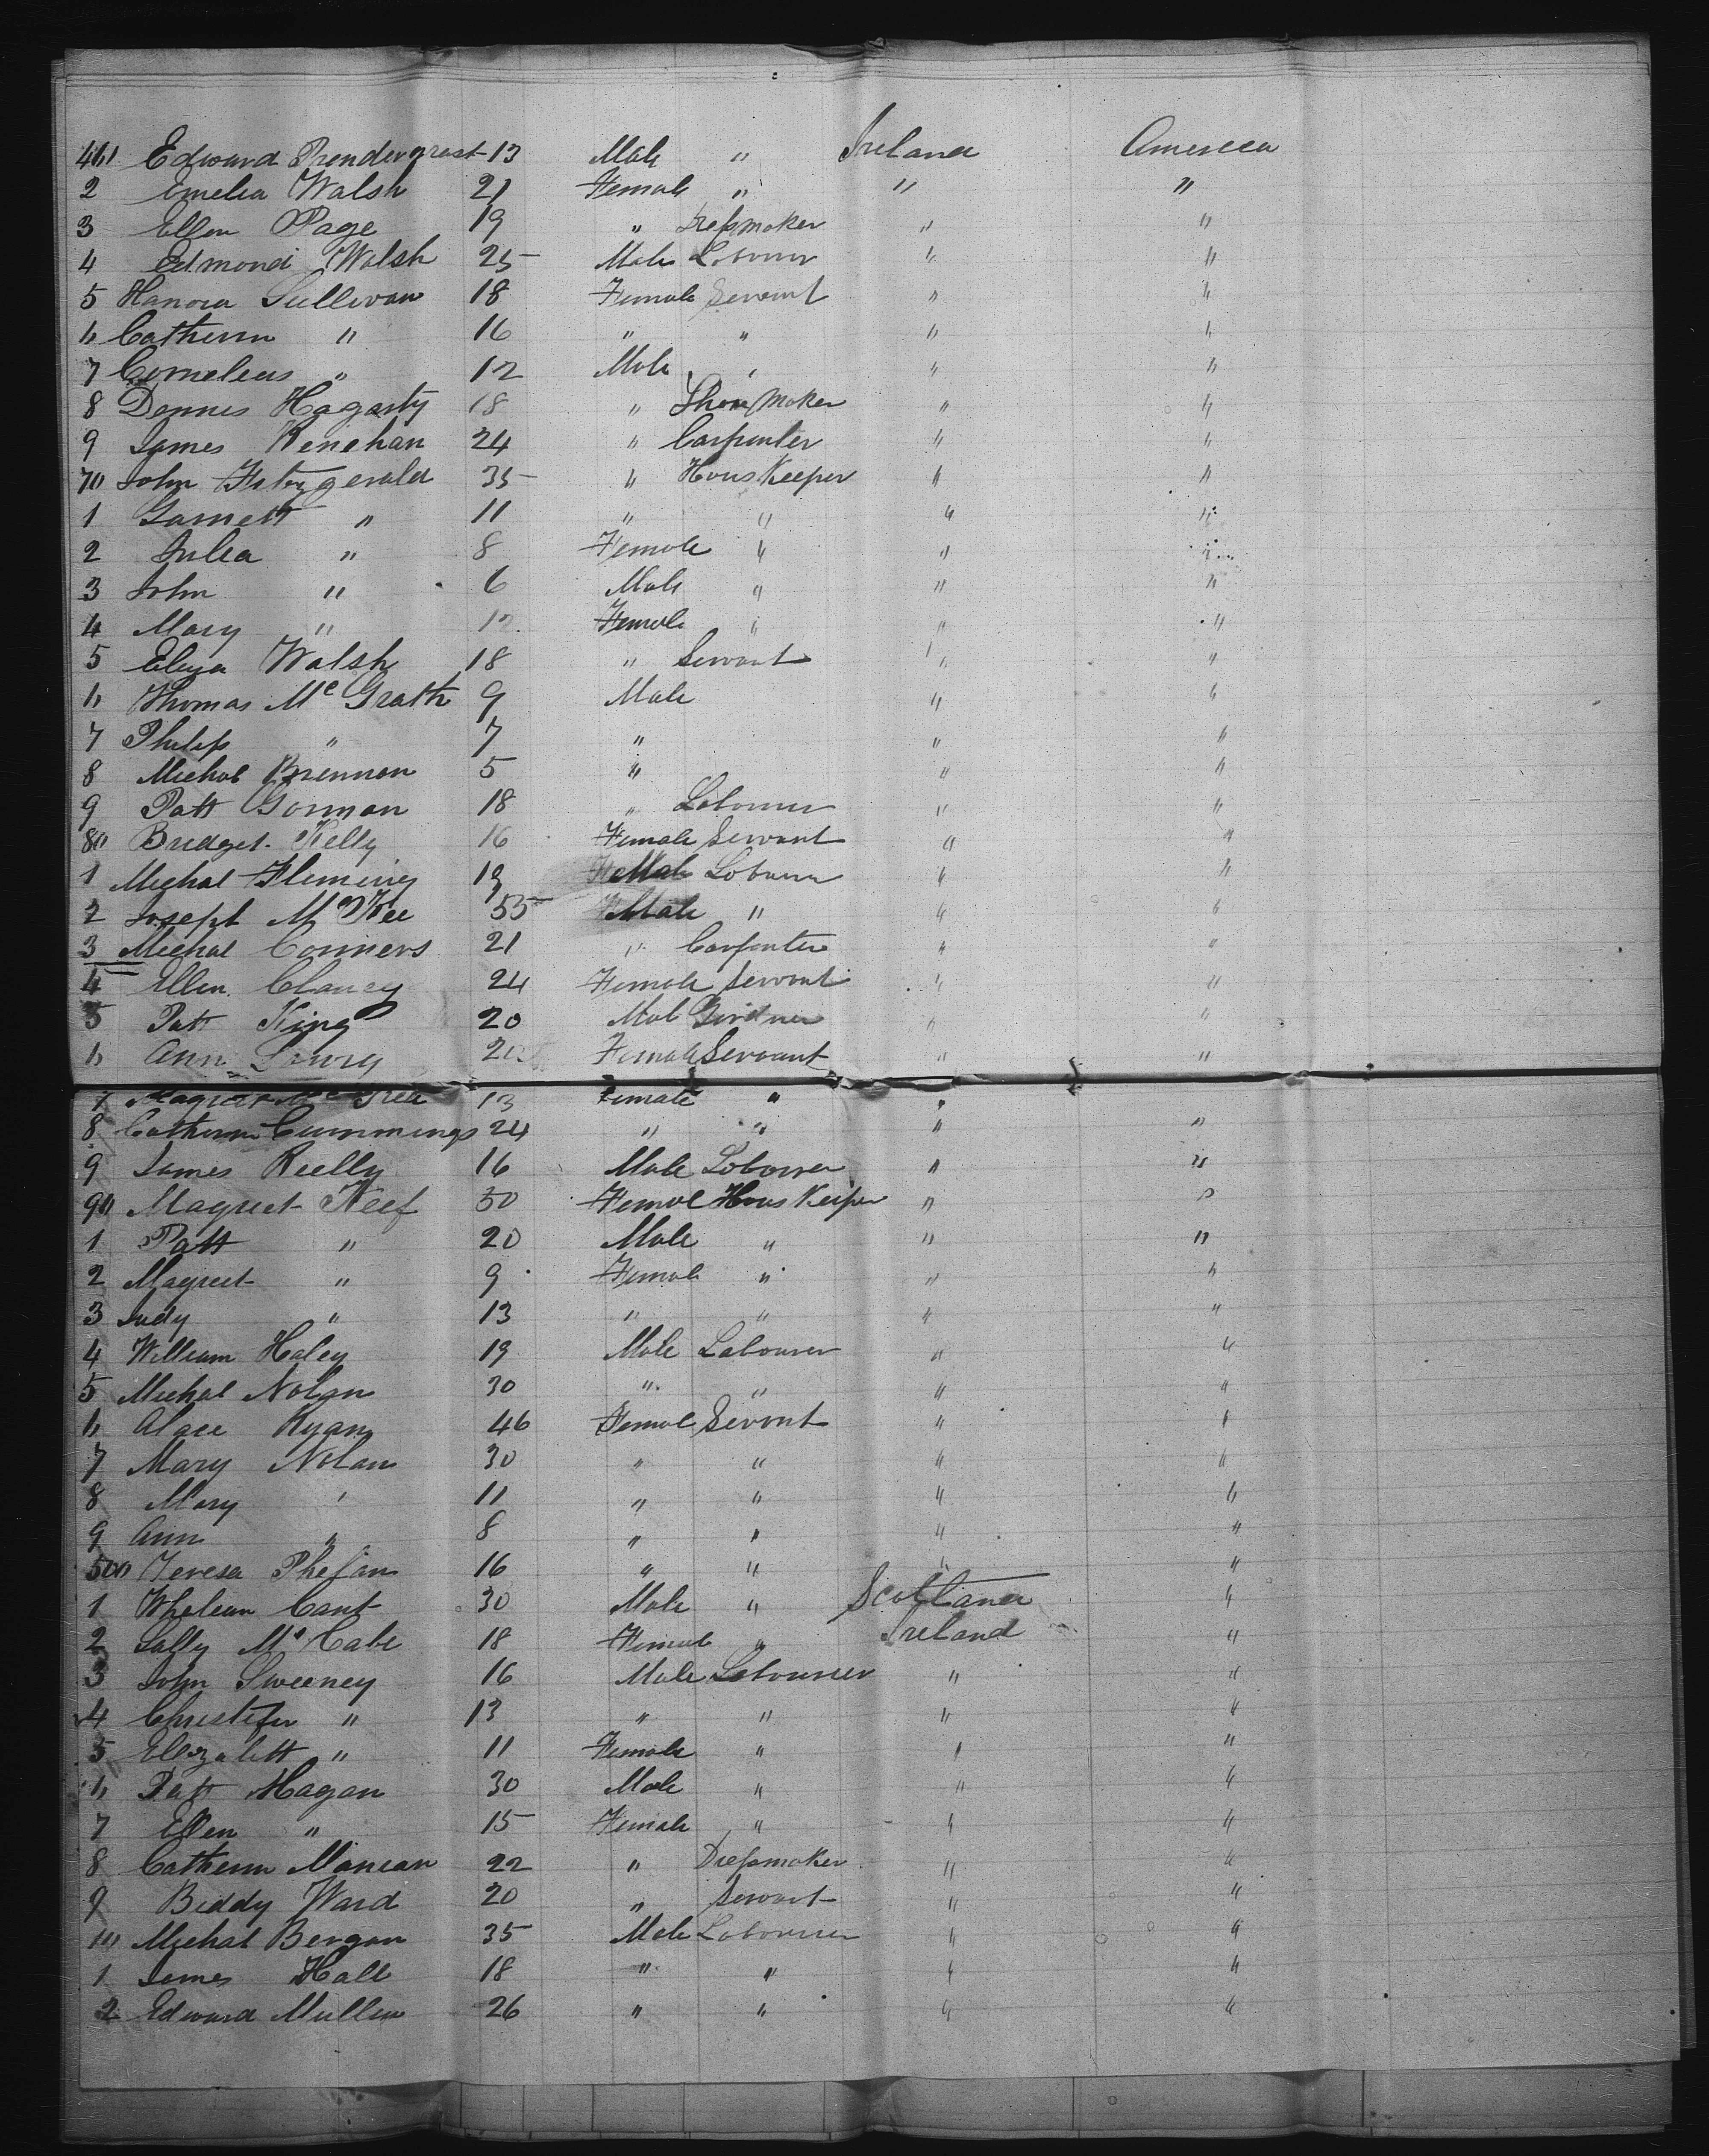 461 Edward Prendergrast 13 Male " Ireland America
2 Emelia Walsh 21 Female " " "
3 Ellen Page 19 " Dressmaker " "
4 Edmond Walsh 25 Male Laborer " "
5 Hanora Sullivan 18 Female Servant " "
6 Catherin " 16 " " " "
7 Cornelius " 12 Male " " "
8 Dennis Hagarty 18 " Shoe Maker " "
9 James Kenehan 24 " Carpenter " "
70 John Fitzgerald 35 " Hous Keeper " "
1 Garnett " 11 " " " "
2 Julia " 8 Female " " "
3 John " 6 Male " " "
4 Mary " Female " " "
5 Eliza Walsh 18 " Servant " "
6 Thomas Mc Grath 9 Male " "
7 Philip " 7 " " "
8 Michal Brennan 5 " " "
9 Patt Gorman 18 " Labourer " "
80 Bridget Kelly 16 Female Servant " "
1 Michal Fleming 19 Male Labourer " "
2 Joseph Mc Kee 55 Male " " "
3 Michal Conners 21 " Carpenter " "
4 Ellen Clancy 24 Female Servant " "
5 Patt King 20 Male Girdner " "
6 Ann Lowry 20 Female Servant " "
7 Magret Mc 13 Female " "
8 Catherin Cummings 24 " " " "
9 James Reelly 16 Male Laborer " "
90 Magret Keef 50 Femal Hous Keeper " "
1 Patt " 20 Male " " "
2 Magret " 9 Female " " "
3 Judy " 13 " " " "
4 William Haley 19 Male Labourer " "
5 Michal Nolan 30 " " " "
6 Alace Ryan 46 Femal Servant " "
7 Mary Nolan 30 " " " "
8 Mary " 11 " " " "
9 Ann " 8 " " " "
500 Teresa Phelan 16 " " " "
1 Whelean Cant 30 Male " Scotland "
2 Sally Mc Cabe 18 Female " Ireland "
3 John Sweeney 16 Male Labourer " "
4 Christifer " 13 " " " "
5 Elizabett " 11 Female " " "
6 Patt Hagan 30 Male " " "
7 Ellen " 15 Female " " "
8 Catherin Manran 22 " Dressmaker " "
9 Biddy Ward 20 " Servant " "
10 Michal Bergan 35 Male Labourer " "
1 James Hall 18 " " " "
2 Edward Mullen 26 " " " "